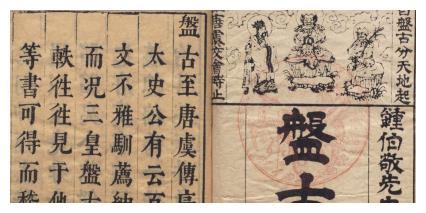 自盤古分天地起
唐虞交會時止
鍾伯敬先
盤古
盤古至唐虞傳
太史公有云百
文不雅馴薦紳
而況三皇盤古
軼徃徃見于他
等書可得而稽